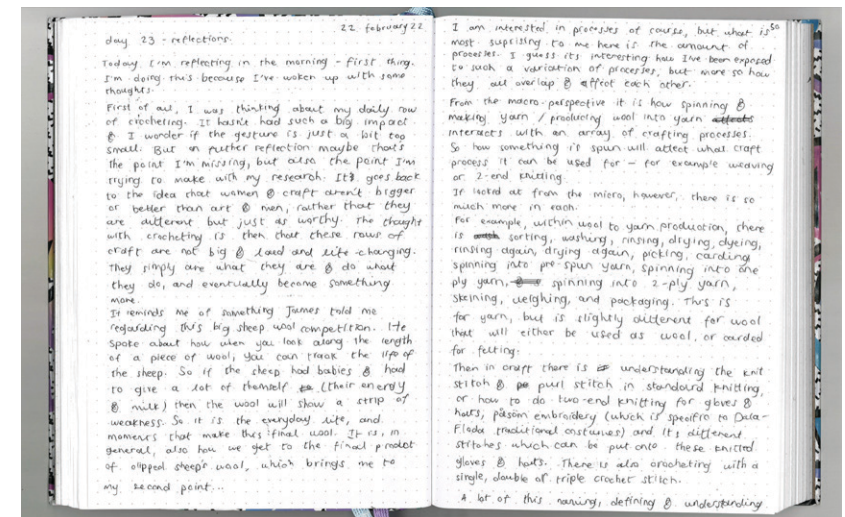 22 february 22
day 23 - reflections.
Today, I'm reflecting in the morning - first thing.
I'm doing this because I've woken up with some
thoughts.
First of all, I was thinking about my daily row
of crocheting. It hasn't had such a big impact
& I wonder if the gesture is just a bit too
small. But on further reflection maybe that's
the point I'm missing, but also the point I'm
trying to make with my research. It goes back
to the idea that women & craft aren't bigger
or better than art & men, rather that they
are different but just as worthy. The thought
with crocheting is then that these rows of
craft are not big & loud and life-changing.
They simply are what they are & do what
they do, and eventually become something
more.
It reminds me of something James told me
regarding this big sheep wool competition. He
spoke about how when you look along the length
of a piece of wool, you can track the life of
the sheep. So if the sheep had babies & had
to give a lot of themself (their energy
& milk) then the wool will show a strip of
weakness. So it is the everyday life, and
moments that make this final wool. It is, in
general, also how we get to the final product
of clipped sheep's wool, which brings me to
my second point...
50
I am interested in processes of course, but what is
most suprising to me here is the amount of
processes. I guess its interesting how I've been exposed
to such a variation of processes, but more so how
they all overlap & affect each other.
From the macro-perspective it is how spinning &
making yarn / producing wool into yarn affects
interacts with an array of crafting processes.
So how something is spun will affect what craft
process it can be used for - for example weaving
or 2-end knitting.
If looked at from the micro, however, there is so
much more in each.
For example, within wool to yarn production, there
is sorting, washing, rinsing, drying, dyeing,
rinsing again, drying again, picking, carding
spinning into pre-spun yarn, spinning into one
ply yarn, spinning into 2-ply yarn,
skeining, weighing, and packaging. This is
for yarn, but is slightly different for wool
that will either be used as wool, or carded
for felting.
Then in craft there is understanding the knit
stitch & purl stitch in standard knitting,
or how to do two-end knitting for gloves &
hats, påsöm embroidery (which is specific to Dala-
Floda traditional costumes) and its different
stitches which can be put onto these knitted
gloves & hats. There is also crocheting with a
single, double or triple crochet stitch.
A lot of this naming, defining & understanding